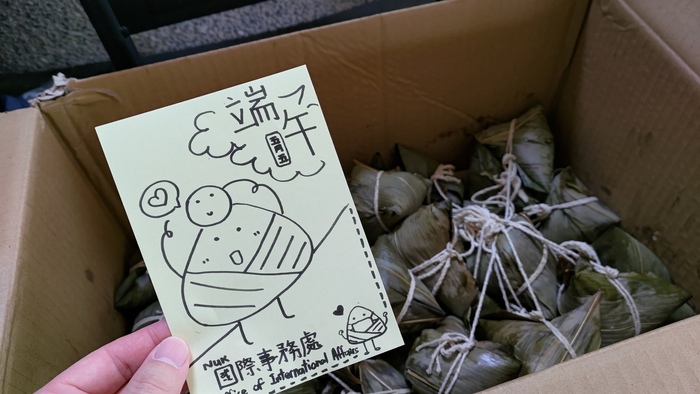 端午
五月五
NUK
國際事務處
Office of International Affairs